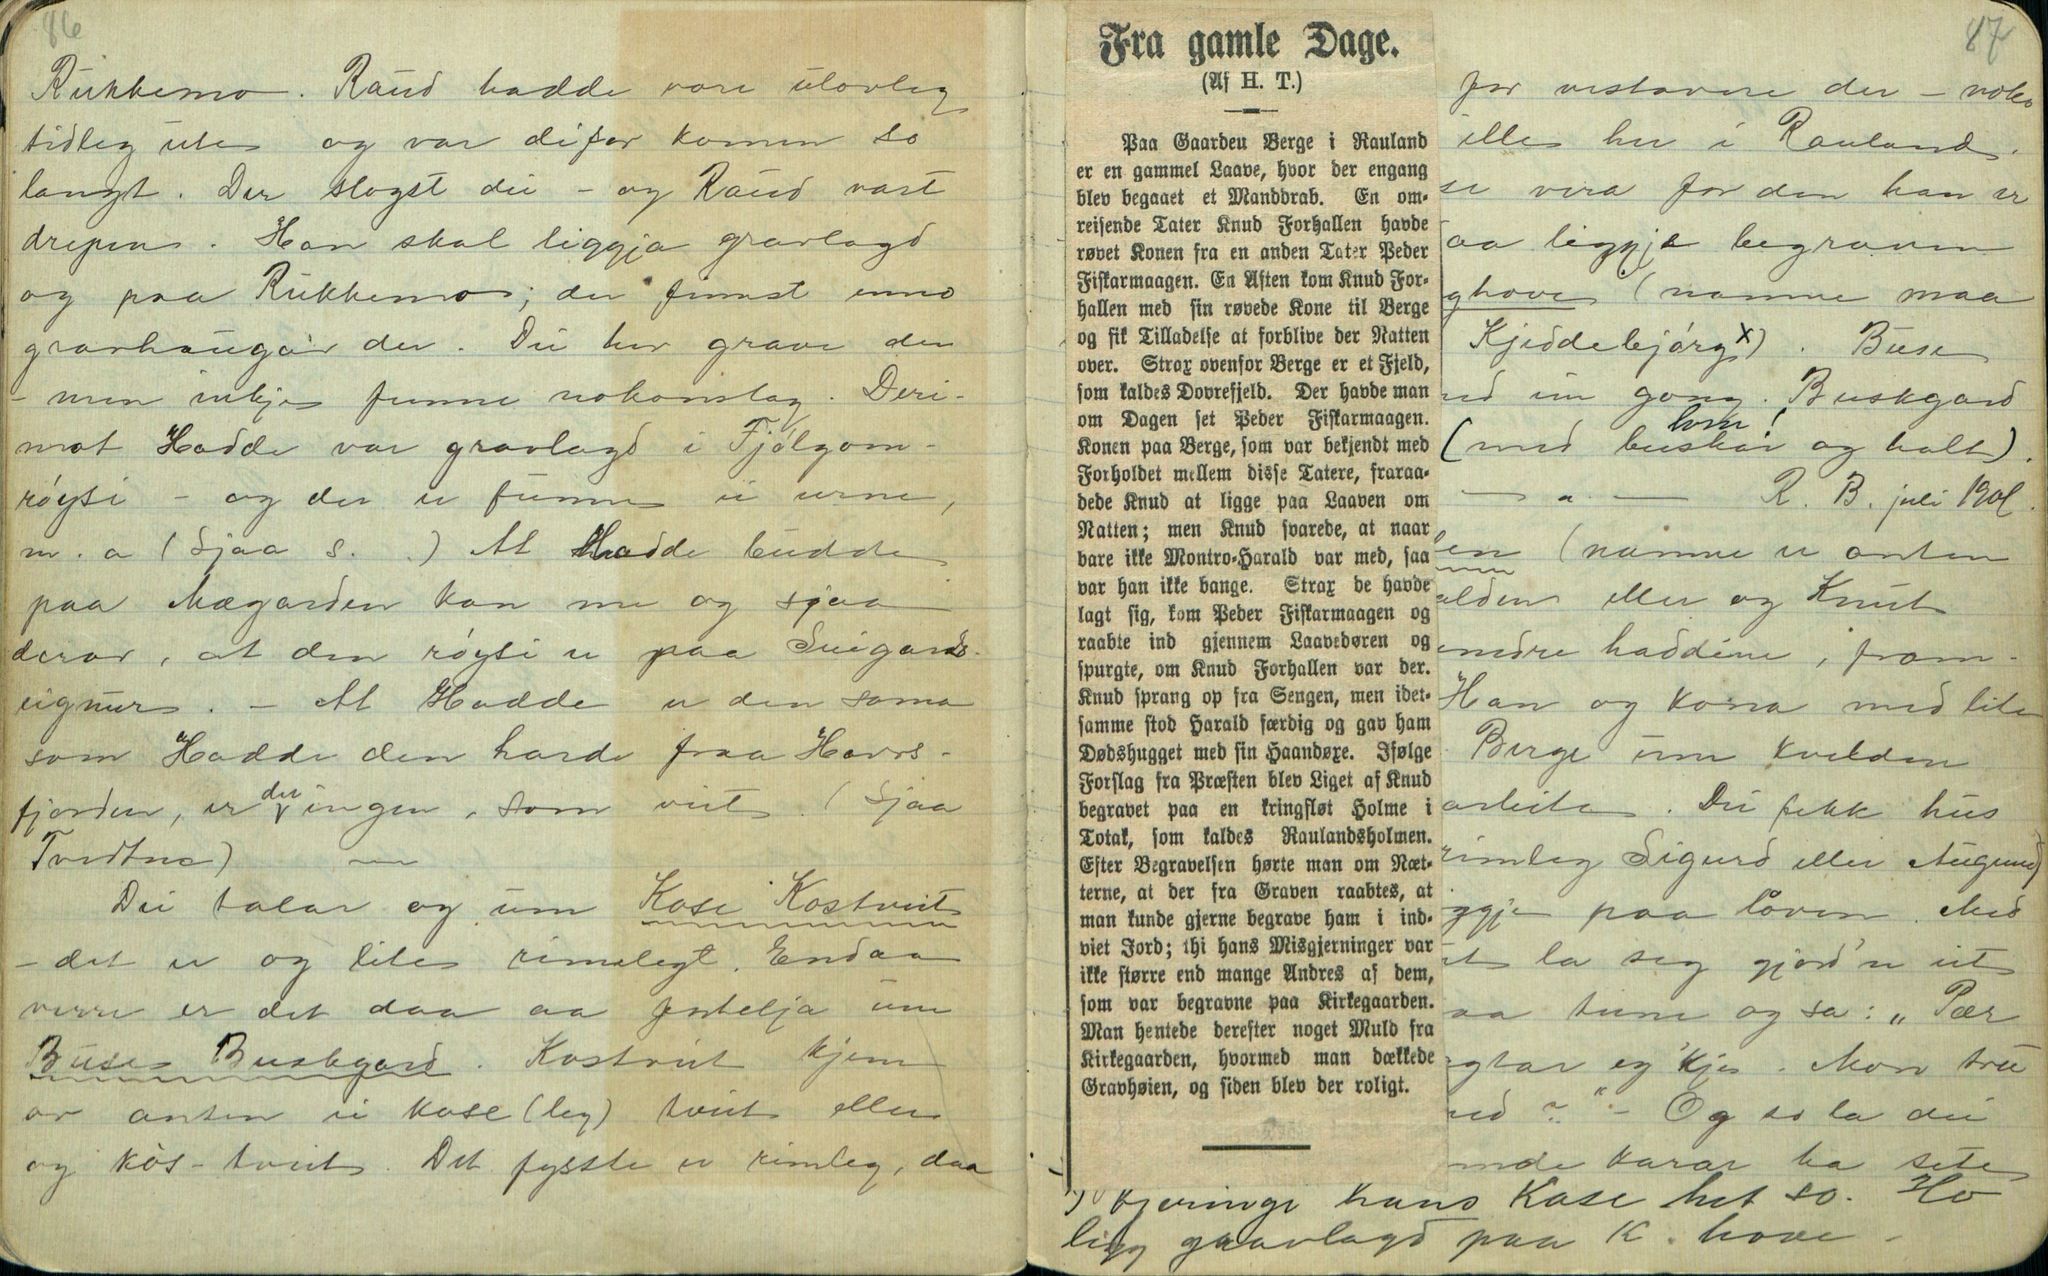 86
Rukkemo. Raud hadde vore ulovleg
tidleg ute og var difor komen so
langt. Der slogst dei - og Raud vart
drepen. Han skal liggja gravlagd
og paa Rukkemo; der finnst enno
gravhaugar der. Dei hev grave der
- men inkje funne nokonslag. Deri-
mot Hadde var gravlagd i Fjølgom-
røysi - og der er funne ei urne,
m. a (Sjaa s. ) At Hadde budde
paa Mægarden kan me og sjaa
derav, at den røysi er paa Suigards-
eignur. - At Hadde er den sama
som Hadde den harde fraa Havrs-
fjorden, er der ingen, som veit. (Sjaa
Tvedtne) —
Dei talar og um Kose Kostveit
- det er og lite rimelegt. Endaa
verre er det daa aa fortelja um
Buse Buskgard. Kostveit kjem
av anten ei kose (leg) tveit eller
og kòs-tveit. Det fysste er rimleg, daa
87
Fra gamle Dage.
(Af H. T.)
Paa Gaarden Berge i Rauland
er en gammel Laave, hvor der engang
blev begaaet et Manddrab. En om-
reisende Tater Knud Forhallen havde
røvet Konen fra en anden Tater Peder
Fiskarmaagen. En Aften kom Knud For-
hallen med sin røvede Kone til Berge
og fik Tilladelse at forblive der Natten
over. Strax ovenfor Berge er et Fjeld,
som kaldes Dovrefjeld. Der havde man
om Dagen set Peder Fiskarmaagen.
Konen paa Berge, som var bekjendt med
Forholdet mellem disse Tatere, fraraa-
dede Knud at ligge paa Laaven om
Natten; men Knud svarede, at naar
bare ikke Montro-Harald var med, saa
var han ikke bange. Strax de havde
lagt sig, kom Peder Fiskarmaagen og
raabte ind gjennem Laavedøren og
spurgte, om Knud Forhallen var der.
Knud sprang op fra Sengen, men idet-
samme stod Harald færdig og gav ham
Dødshugget med sin Haandøxe. Ifølge
Forslag fra Præsten blev Liget af Knud
begravet paa en kringfløt Holme i
Totak, som kaldes Raulandsholmen.
Efter Begravelsen hørte man om Næt-
terne, at der fra Graven raabtes, at
man kunde gjerne begrave ham i ind-
viet Jord; thi hans Misgjerninger var
ikke større end mange Andres af dem,
som var begravne paa Kirkegaarden.
Man hentede derefter noget Muld fra
Kirkegaarden, hvormed man dækkede
Gravhøien, og siden blev der roligt.
for vestovere der - noko
elles her i Rauland.
se vera for den han er
aa liggja begraven
ghove (namne maa
Kjeddebjørg x). Buse
ed ein gong. Buskgard
(med buskar og halt).
— " — R. B. juli 1901.
en (namne er anten
alden eller og Knut
endre haddine, fram-
Han og kona med lite
Berge um kvelden
arbeite. Dei fekk hus
rimleg Sigurd eller Augund)
ggje paa låven. Med
et la seg gjord'n ut
aa tune og sa: „Pær
gtar eg 'kje. Mon tru
ed ?" - Og so la dei
nde karar ha sete
x) kjeringi hans Kose het so. Ho
ligg gravlagd paa K. hove -